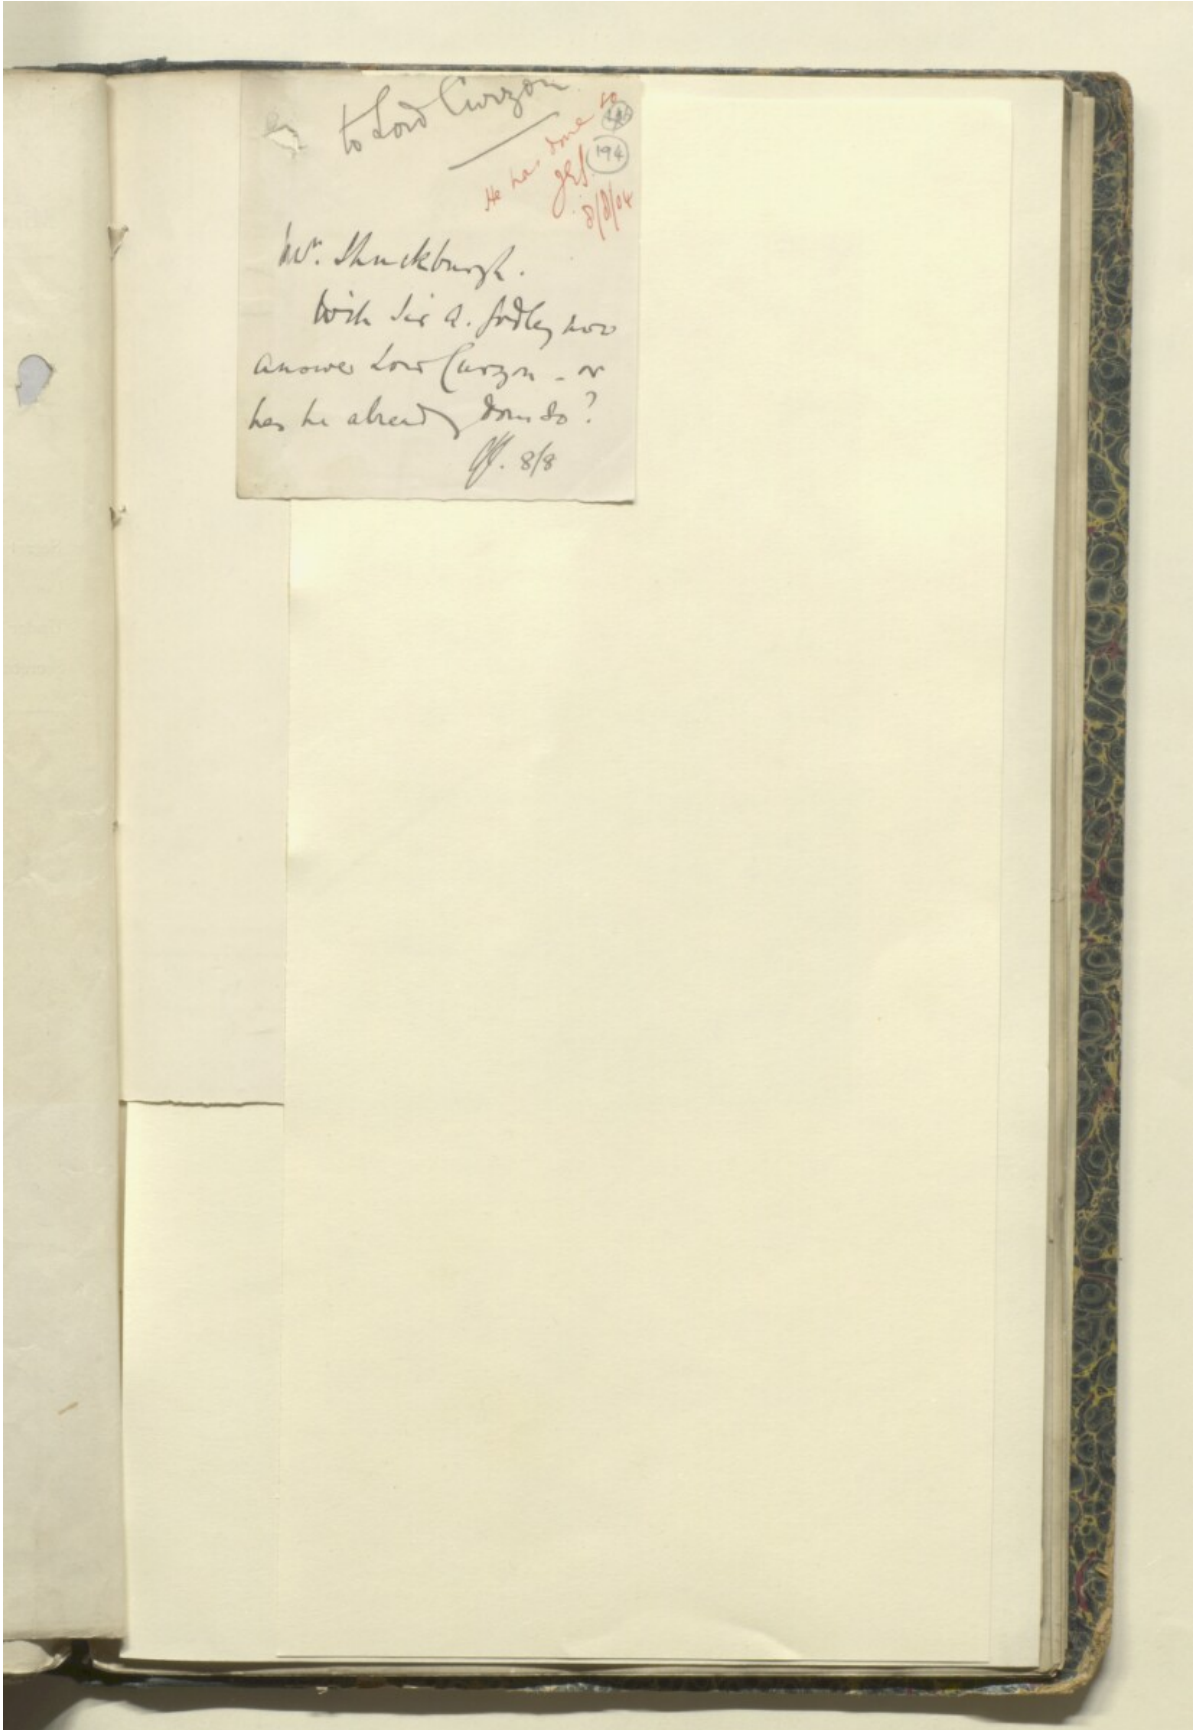 to Lord Curzon.
He has done so
JES.
8/8/04
194
Mr. Shuckburgh.
Will Sir A. Godley now
answer Lord Curzon - or
has he already done so?
8/8